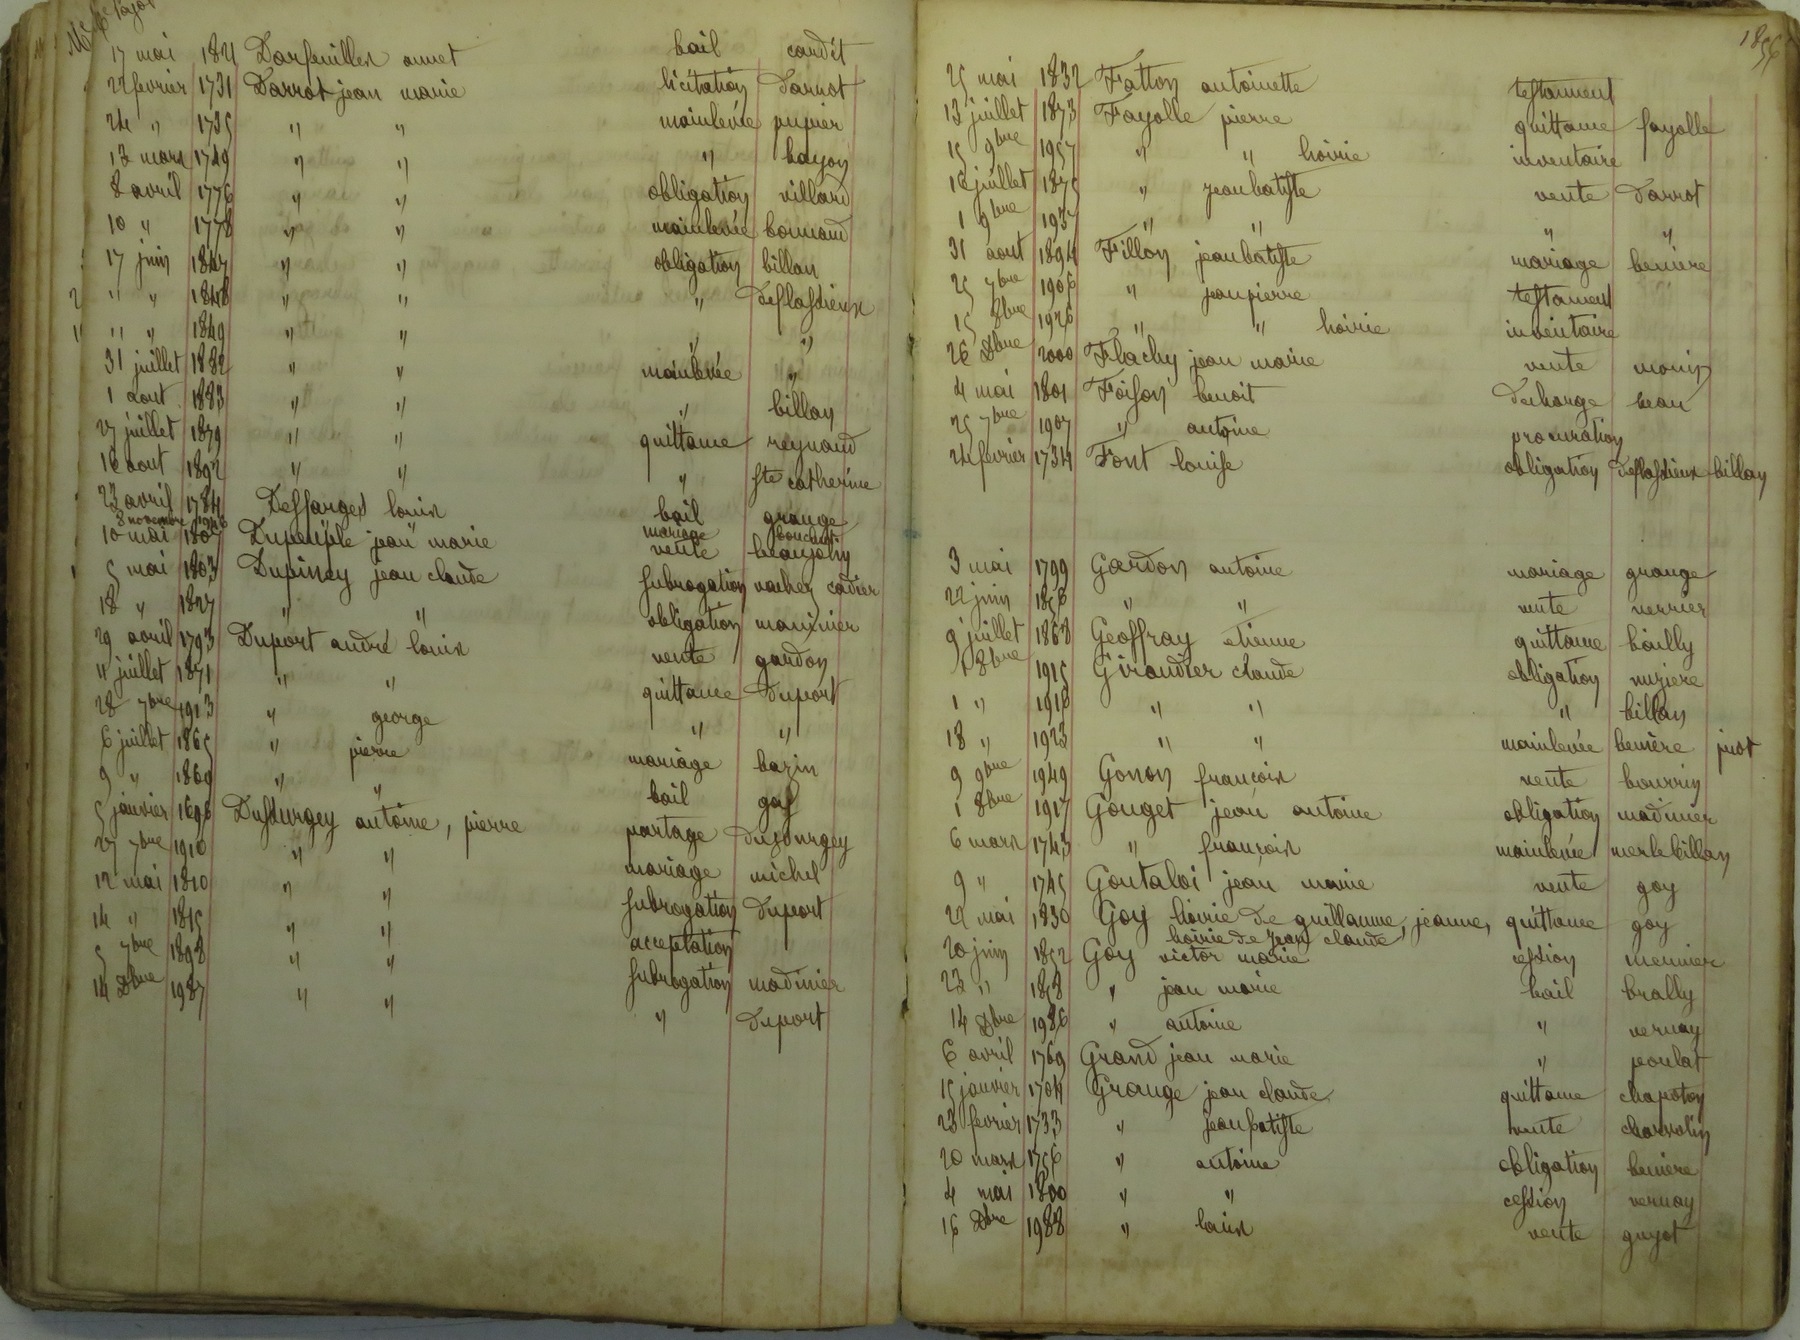 17 mai 1821 Darfeuillen annet bail cardit
22 fevrier 1731 Darrot jean marie licitation Darrot
24 " 1735 " " mainlevée pupier
13 mars 1749 " " " bayon
8 avril 1776 " " obligation villard
10 " 1778 " " mainlevée bonnand
17 juin 1847 " " obligation billan
2 " " 1848 " " " deflassieux
" " " 1849 " " " "
31 juillet 1882 " " mainlevée "
1 aout 1883 " " " billan
27 juillet 1879 " " quittance reynaud
16 aout 1892 " " " ste catherine
23 avril 1784 Dessarges louis bail grange
8 novembre mariage
10 mai 1807 Dupeuple jean marie vente beaujolin
5 mai 1803 Dupiney jean claude subrogation vacher cadier
18 " 1827 " " obligation mavinier
29 avril 1793 Duport andré louis vente gardon
11 juillet 1871 " " quittance Duport
28 7bre 1923 " george " "
6 juillet 1865 " pierre mariage bazin
9 " 1869 " " bail gas
5 janvier 1696 Dusurgey antoine, pierre partage dusurgey
27 7bre 1910 " " mariage michel
12 mai 1810 " " subrogation duport
14 " 1815 " " acceptation
5 7bre 1898 " " subrogation madinier
14 Dbre 1987 " " " Duport
1856
25 mai 1832 Fatton antoinette testament
13 juillet 1873 Fayolle pierre quittance fayolle
15 9bre 1957 " " hoirie inventaire
16 juillet 1875 " jean batiste vente Darrot
1 9bre 1937 " " " "
31 aout 1894 Fillon jean batiste mariage beniere
25 7bre 1906 " jean pierre testament
15 8bre 1926 " " hoirie inventaire
26 Dbre 2000 Flachy jean marie vente morin
4 mai 1801 Foison benoit decharge beau
25 7bre 1907 " antoine procuration
24 fevrier 1734 Font louise obligation deflassieux billan
3 mai 1799 Gardon antoine mariage grange
22 juin 1856 " " vente verrier
9 juillet 1868 Geoffray etienne quittance bailly
1 8bre 1915 Giraudier claude obligation miziere
1 " 1918 " " " billan
18 " 1923 " " mainlevée benière
9 9bre 1949 Gonon françois vente bourrin
1 8bre 1917 Gouget jean antoine obligation madinier
6 mars 1743 " françois mainlevée merle billan
9 " 1745 Goutaloi jean marie vente goy
22 mai 1830 Goy hoirie de guillaume, jeanne, quittance goy
hoirie de jean claude
20 juin 1852 Goy victor marie cession meunier
23 " 1858 " jean marie bail brally
14 Dbre 1986 " antoine " vernay
6 avril 1769 Grand jean marie " poulat
15 janvier 1704 Grange jean claude quittance chapoton
23 fevrier 1733 " jean batiste vente charrolin
20 mars 1756 " antoine obligation beniere
4 mai 1800 " " cession vernay
16 Dbre 1988 " louis vente guyot